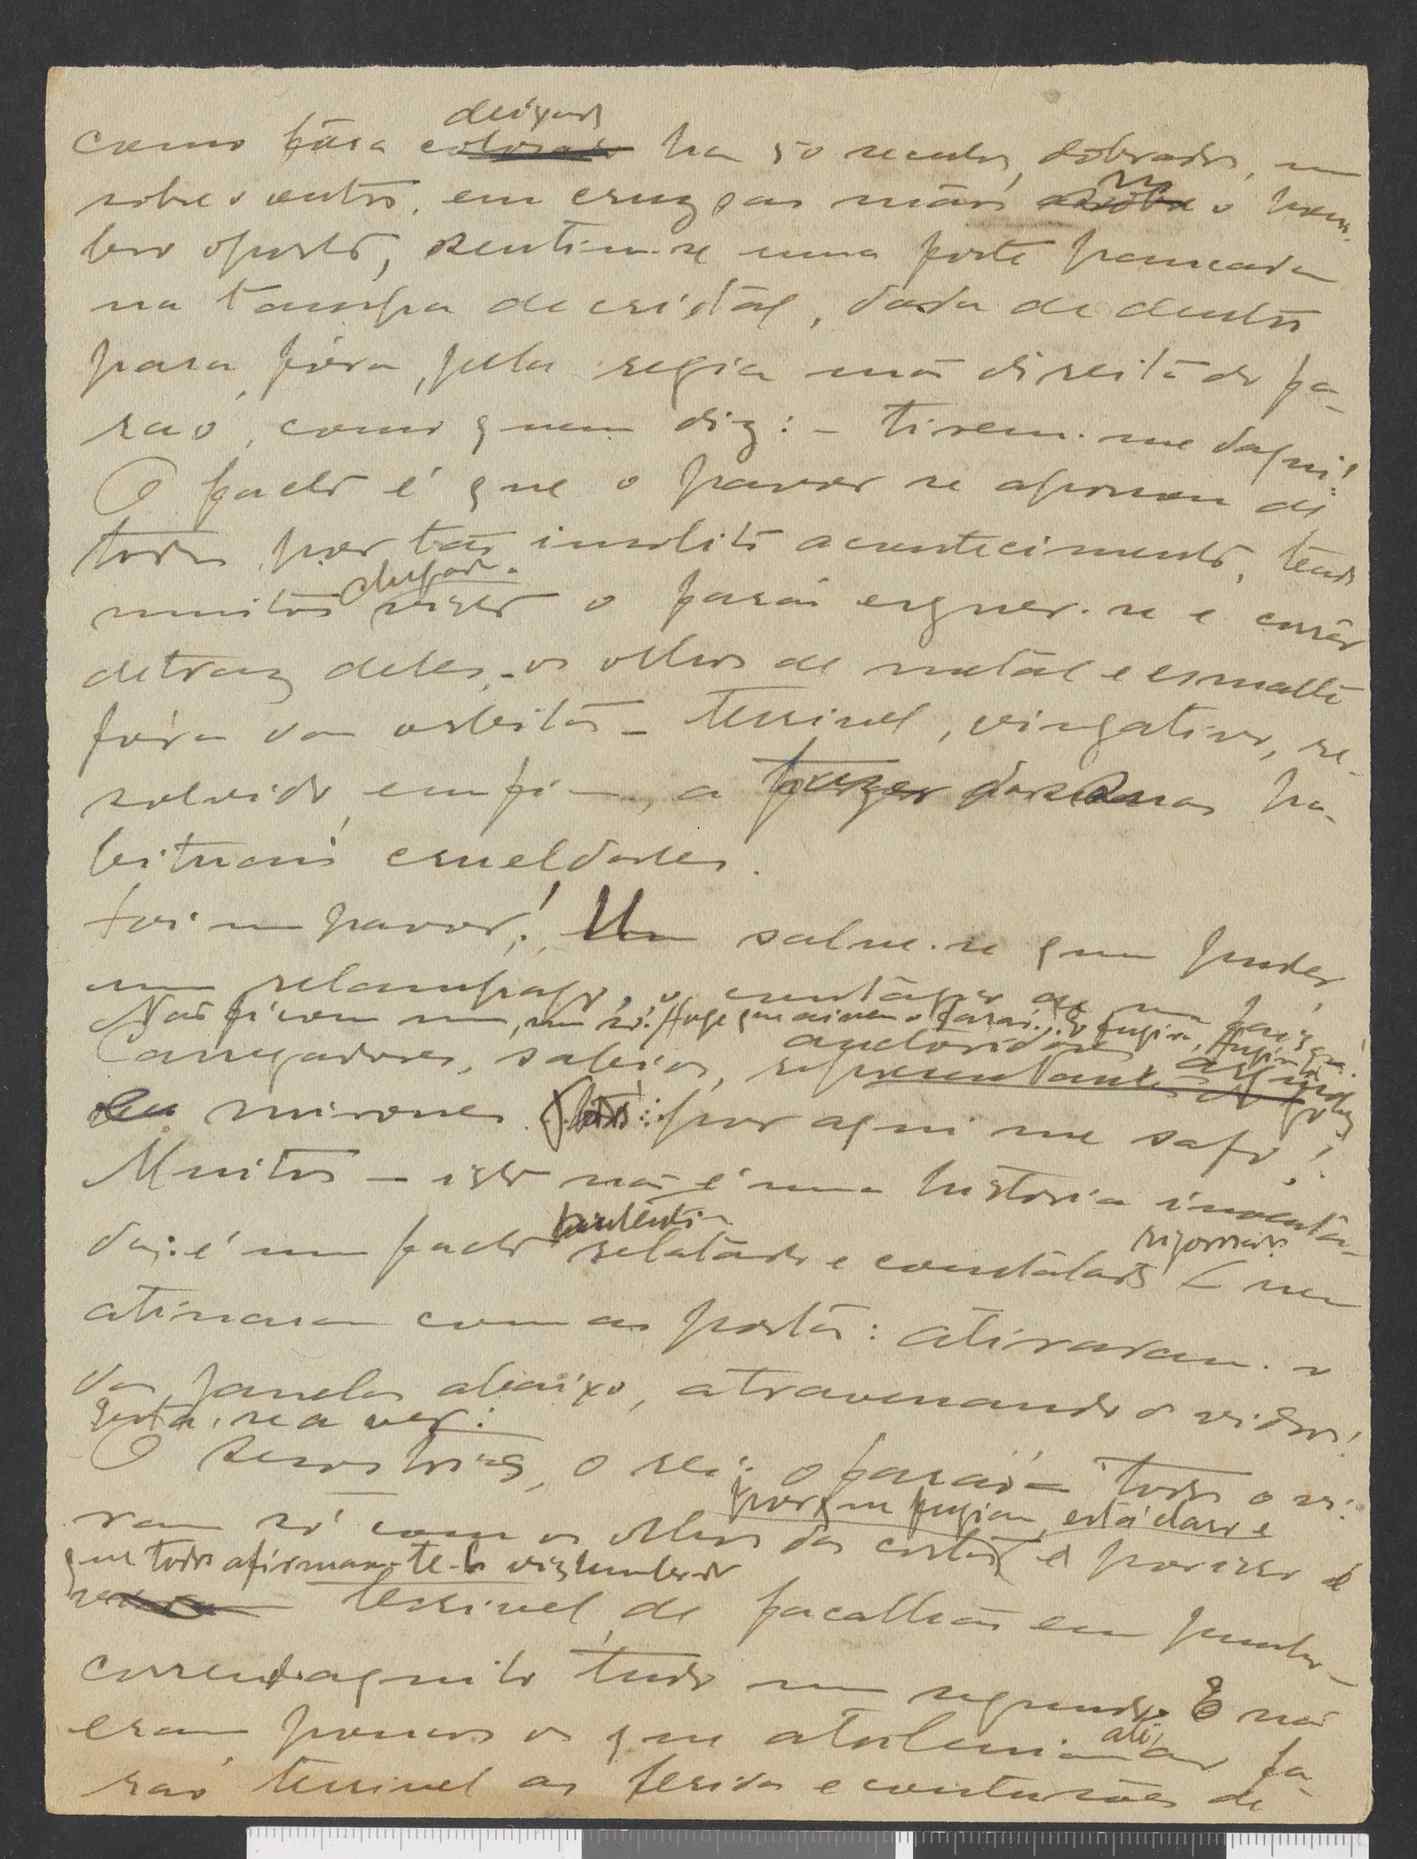 como fôra colocado deixado ha 50 seculos, dobrados, um
sobre o outro, em cruz, as mãos no o hom-
bro oposto, sentiu-se uma forte pancada
na tampa de cristal, dada de dentro
para fóra, pela regia mão direita do fa-
raó, como quem diz: - tirem-me daqui!
O facto é que o pavor se apossou de
todos por tão insolito acontecimento, tendo
muitos visto o faraó erguer-se e correr
detraz deles, os olhos de metal e esmalte
fóra das orbitas - terrivel, vingativo, re-
solvido, emfim, a fazer das suas ha-
bituais crueldades.
Foi um pavor! Um salve-se quem puder,
um relampago, o contagio de um
Não ficou um, um só! Foge que ai vem o faraó! fugir, fugir
Carregadores, sabios, auctoridades, representantes
mirones por aqui me safo!
Muitos - isto não é uma historia inventa-
da: é um facto relatado e constatado rigoroso - nem
atinaram com as portas: atiraram-se
das janelas abaixo, atravessando os vidros!
O Sesostris, o rei, o faraó - todos o vi-
ram só com os olhos das costas e por isso é
porque fugiam, está claro e
que todos afirmam te-lo vislumbrado
terrivel, de facalhão em punho -
correu aquilo tudo num segundo. E não
eram poucos os que atribuiam ao fa-
raó terrivel as feridas e contusões de